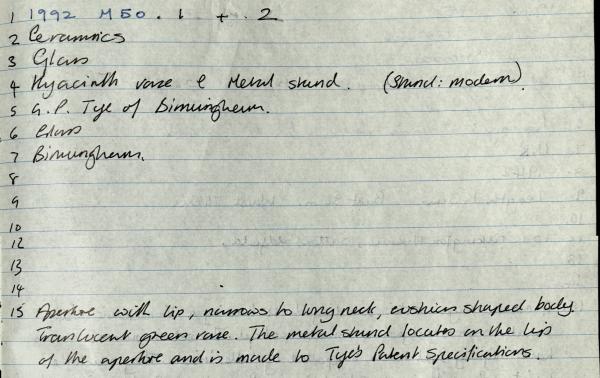 1 1992 M50.1 + .2
2 Ceramics
3 Glass
4 Hyacinth vase & Metal stand. (Stand: modern).
5 G.P. Tye of Birmingham.
6 Glass
7 Birmingham.
8
9
10
12
13
14
15 Aperture with lip, narrows to long neck, cushion shaped body.
Translucent green vase. The metal stand locates on the lip
of the aperture and is made to Tye's Patent Specifications.